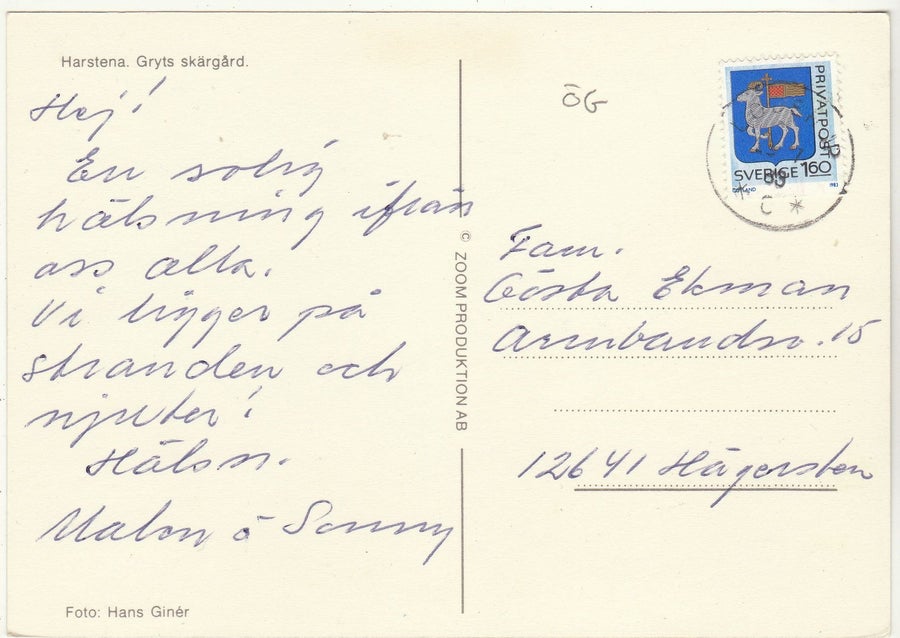 Harstena. Gryts skärgård.
Hej!
En solig
hälsning ifrån
oss alla.
Vi ligger på
stranden och
njuter!
Hälsn.
Malen o Sonny
Foto: Hans Ginér
© ZOOM PRODUKTION AB
ÖG
PRIVATPOST
SVERIGE 160
GOTLAND 1983
83
C
Fam.
Gösta Ekman
Armbandsv. 15
12641 Hägersten